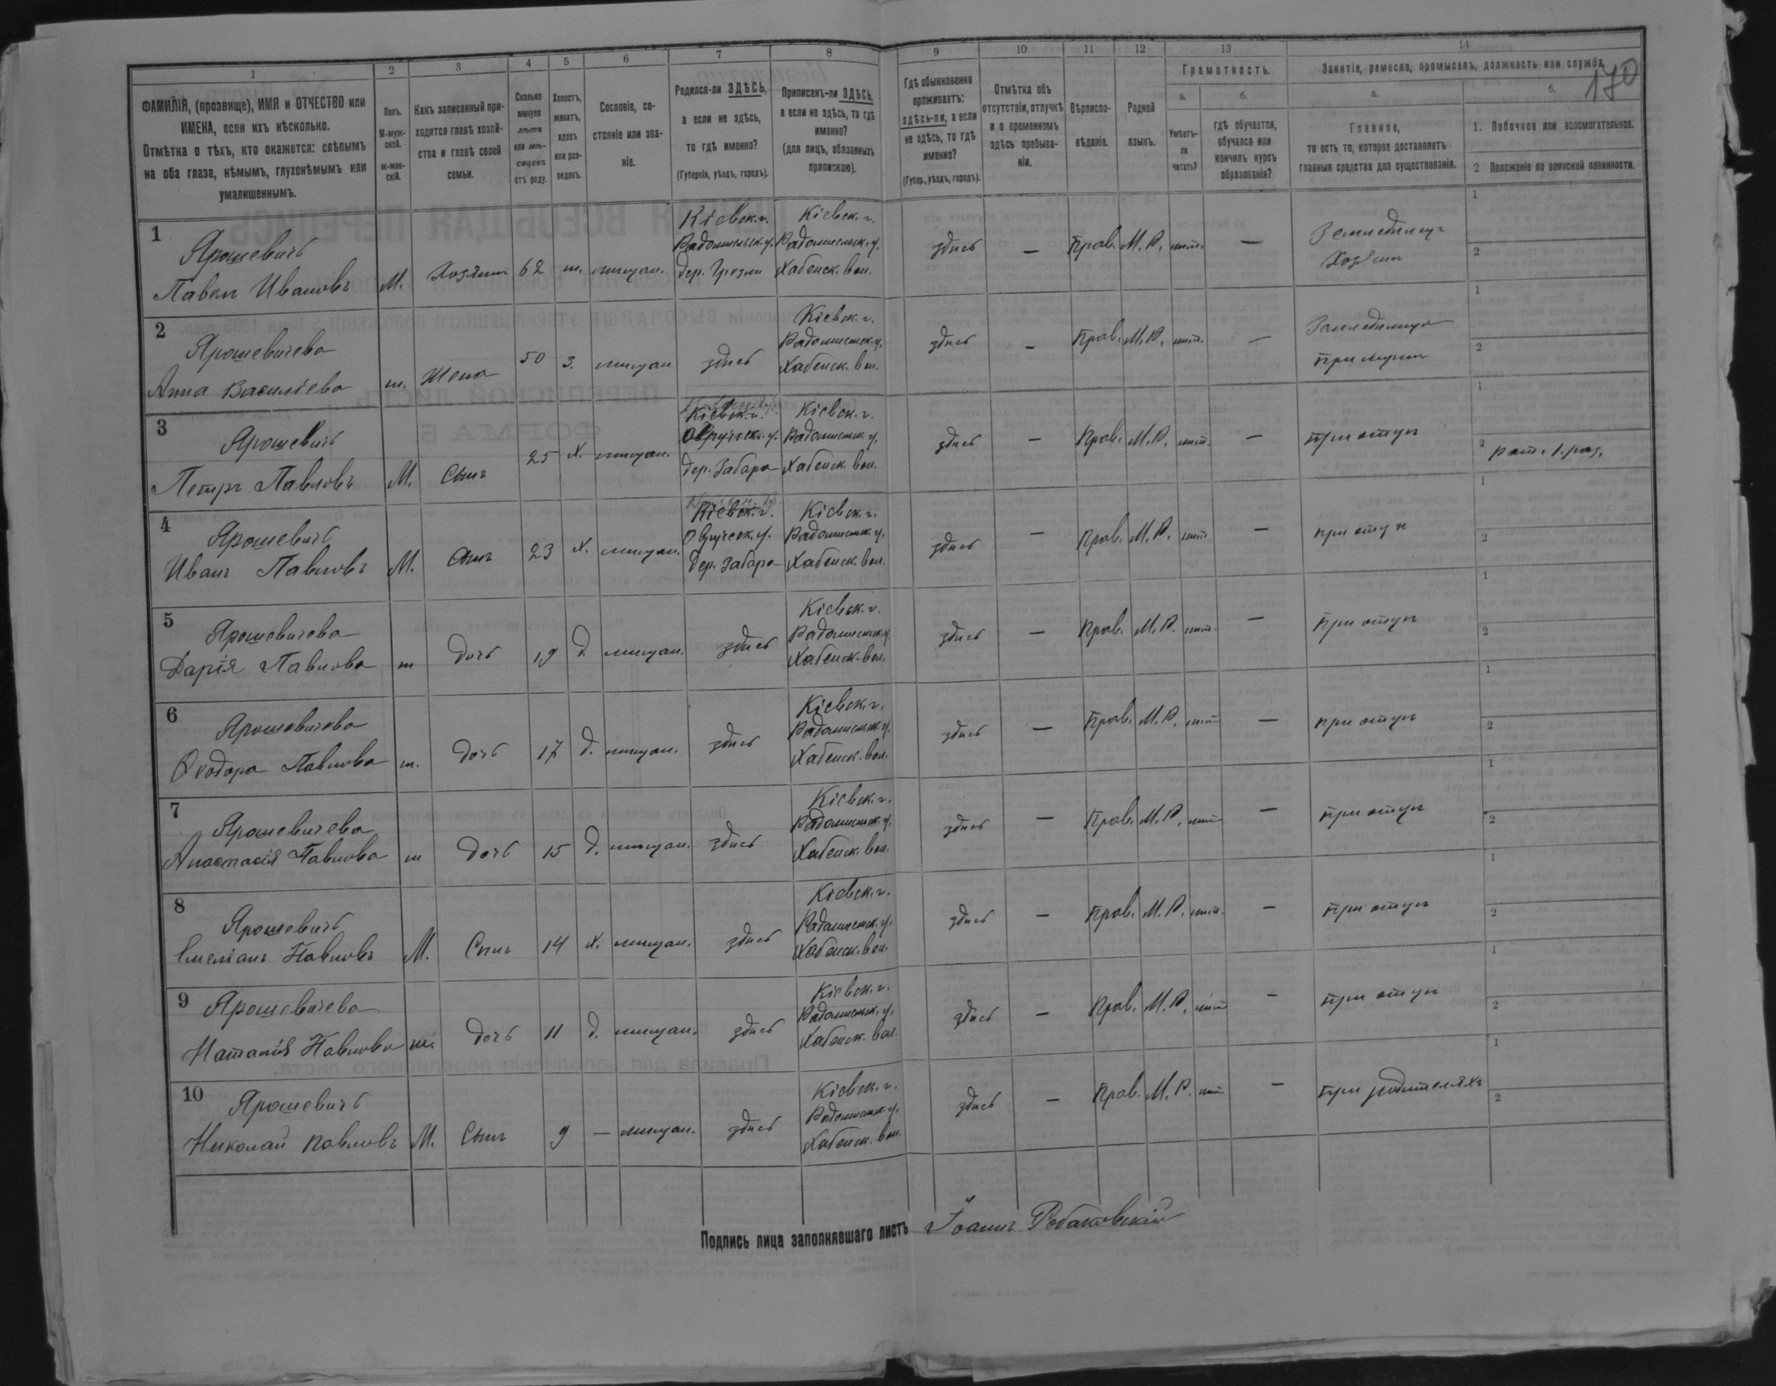 170
1 2 3 4 5 6 7 8 9 10 11 12 13 14
ФАМИЛІЯ, (прозвище), ИМЯ и ОТЧЕСТВО или
ИМЕНА, если ихъ нѣсколько.
Отмѣтка о тѣхъ, кто окажется: слѣпымъ
на оба глаза, нѣмымъ, глухонѣмымъ или
умалишеннымъ.
Полъ.
М-муж-
ской.
Ж-жен-
скій.
Какъ записанный при-
ходится главѣ хозяй-
ства и главѣ своей
семьи.
Сколько
минуло
лѣтъ
или мѣ-
сяцевъ
отъ роду.
Холостъ,
женатъ,
вдовъ
или раз-
веденъ.
Сословіе, со-
стояніе или зва-
ніе.
Родился-ли ЗДѢСЬ,
а если не здѣсь,
то гдѣ именно?
(Губернія, уѣздъ, городъ).
Приписанъ-ли ЗДѢСЬ,
а если не здѣсь, то гдѣ
именно?
(для лицъ, обязанныхъ
припискою).
Гдѣ обыкновенно
проживаетъ:
здѣсь-ли, а если
не здѣсь, то гдѣ
именно?
(Губер., уѣздъ, городъ).
Отмѣтка объ
отсутствіи, отлучкѣ
и о временномъ
здѣсь пребыва-
ніи.
Вѣроиспо-
вѣданіе.
Родной
языкъ.
Грамотность.
а.
Умѣетъ-
ли
читать?
б.
гдѣ обучается,
обучался или
кончилъ курсъ
образованія?
Занятіе, ремесло, промыселъ, должность или служба.
а.
Главное,
то есть то, которое доставляетъ
главныя средства для существованія.
б.
1. Побочное или вспомогательное.
2 Положеніе по воинской повинности.
1
Ярошевичъ
Павелъ Ивановъ М. Хозяинъ 62 ж. мищан.
Кіевск. г.
Радомысльск. у.
дер. Грезли
Кіевск. г.
Радомысльск. у.
Хабенск. вол.
здись — Прав. М. Р. нит. —
Земледелец
Хозяин
2
Ярошевичева
Анна Василіева ж. Жена 50 з. мищан. здись
Кіевск. г.
Радомысльск. у.
Хабенск. вол.
здись — Прав. М. Р. нит. —
Земледелица
при мужи
3
Ярошевичъ
Петръ Павловъ М. Сынъ 25 х. мищан.
Кіевск. г.
Овручск. у.
дер. Забара
Кіевск. г.
Радомысльск. у.
Хабенск. вол.
здись — Прав. М. Р. нит. — при отцу
рат. 1. раз.
4
Ярошевичъ
Иванъ Павловъ М. Сынъ 23 х. мищан.
Кіевск. г.
Овручск. у.
дер. Забара
Кіевск. г.
Радомысльск. у.
Хабенск. вол.
здись — Прав. М. Р. нит. — при отцу
5
Ярошевичева
Дарія Павлова ж Дочь 19 д. мищан. здись
Кіевск. г.
Радомысльск. у.
Хабенск. вол.
здись — Прав. М. Р. нит. — При отцу
6
Ярошевичева
Ѳеодора Павлова ж. Дочь 17 д. мищан. здись
Кіевск. г.
Радомысльск. у.
Хабенск. вол.
здись — Прав. М. Р. нит — при отцу
7
Ярошевичева
Анастасія Павлова ж Дочь 15 д. мищан. здись
Кіевск. г.
Радомысльск. у.
Хабенск. вол.
здись — Прав. М. Р. нит — при отцу
8
Ярошевичъ
Емеліанъ Павловъ М. Сынъ 14 х. мищан. здись
Кіевск. г.
Радомысльск. у.
Хабенск. вол.
здись — Прав. М. Р. нит. — при отцу
9
Ярошевичева
Наталія Павлова ж. Дочь 11 д. мищан. здись
Кіевск. г.
Радомысльск. у.
Хабенск. вол.
здись — Прав. М. Р. нит — при отцу
10
Ярошевичъ
Николай Павловъ М. Сынъ 9 — мищан. здись
Кіевск. г.
Радомысльск. у.
Хабенск. вол.
здись — Прав. М. Р. нит — при родителяхъ
Подпись лица заполнявшаго листъ Іоаннъ Рабаковскій